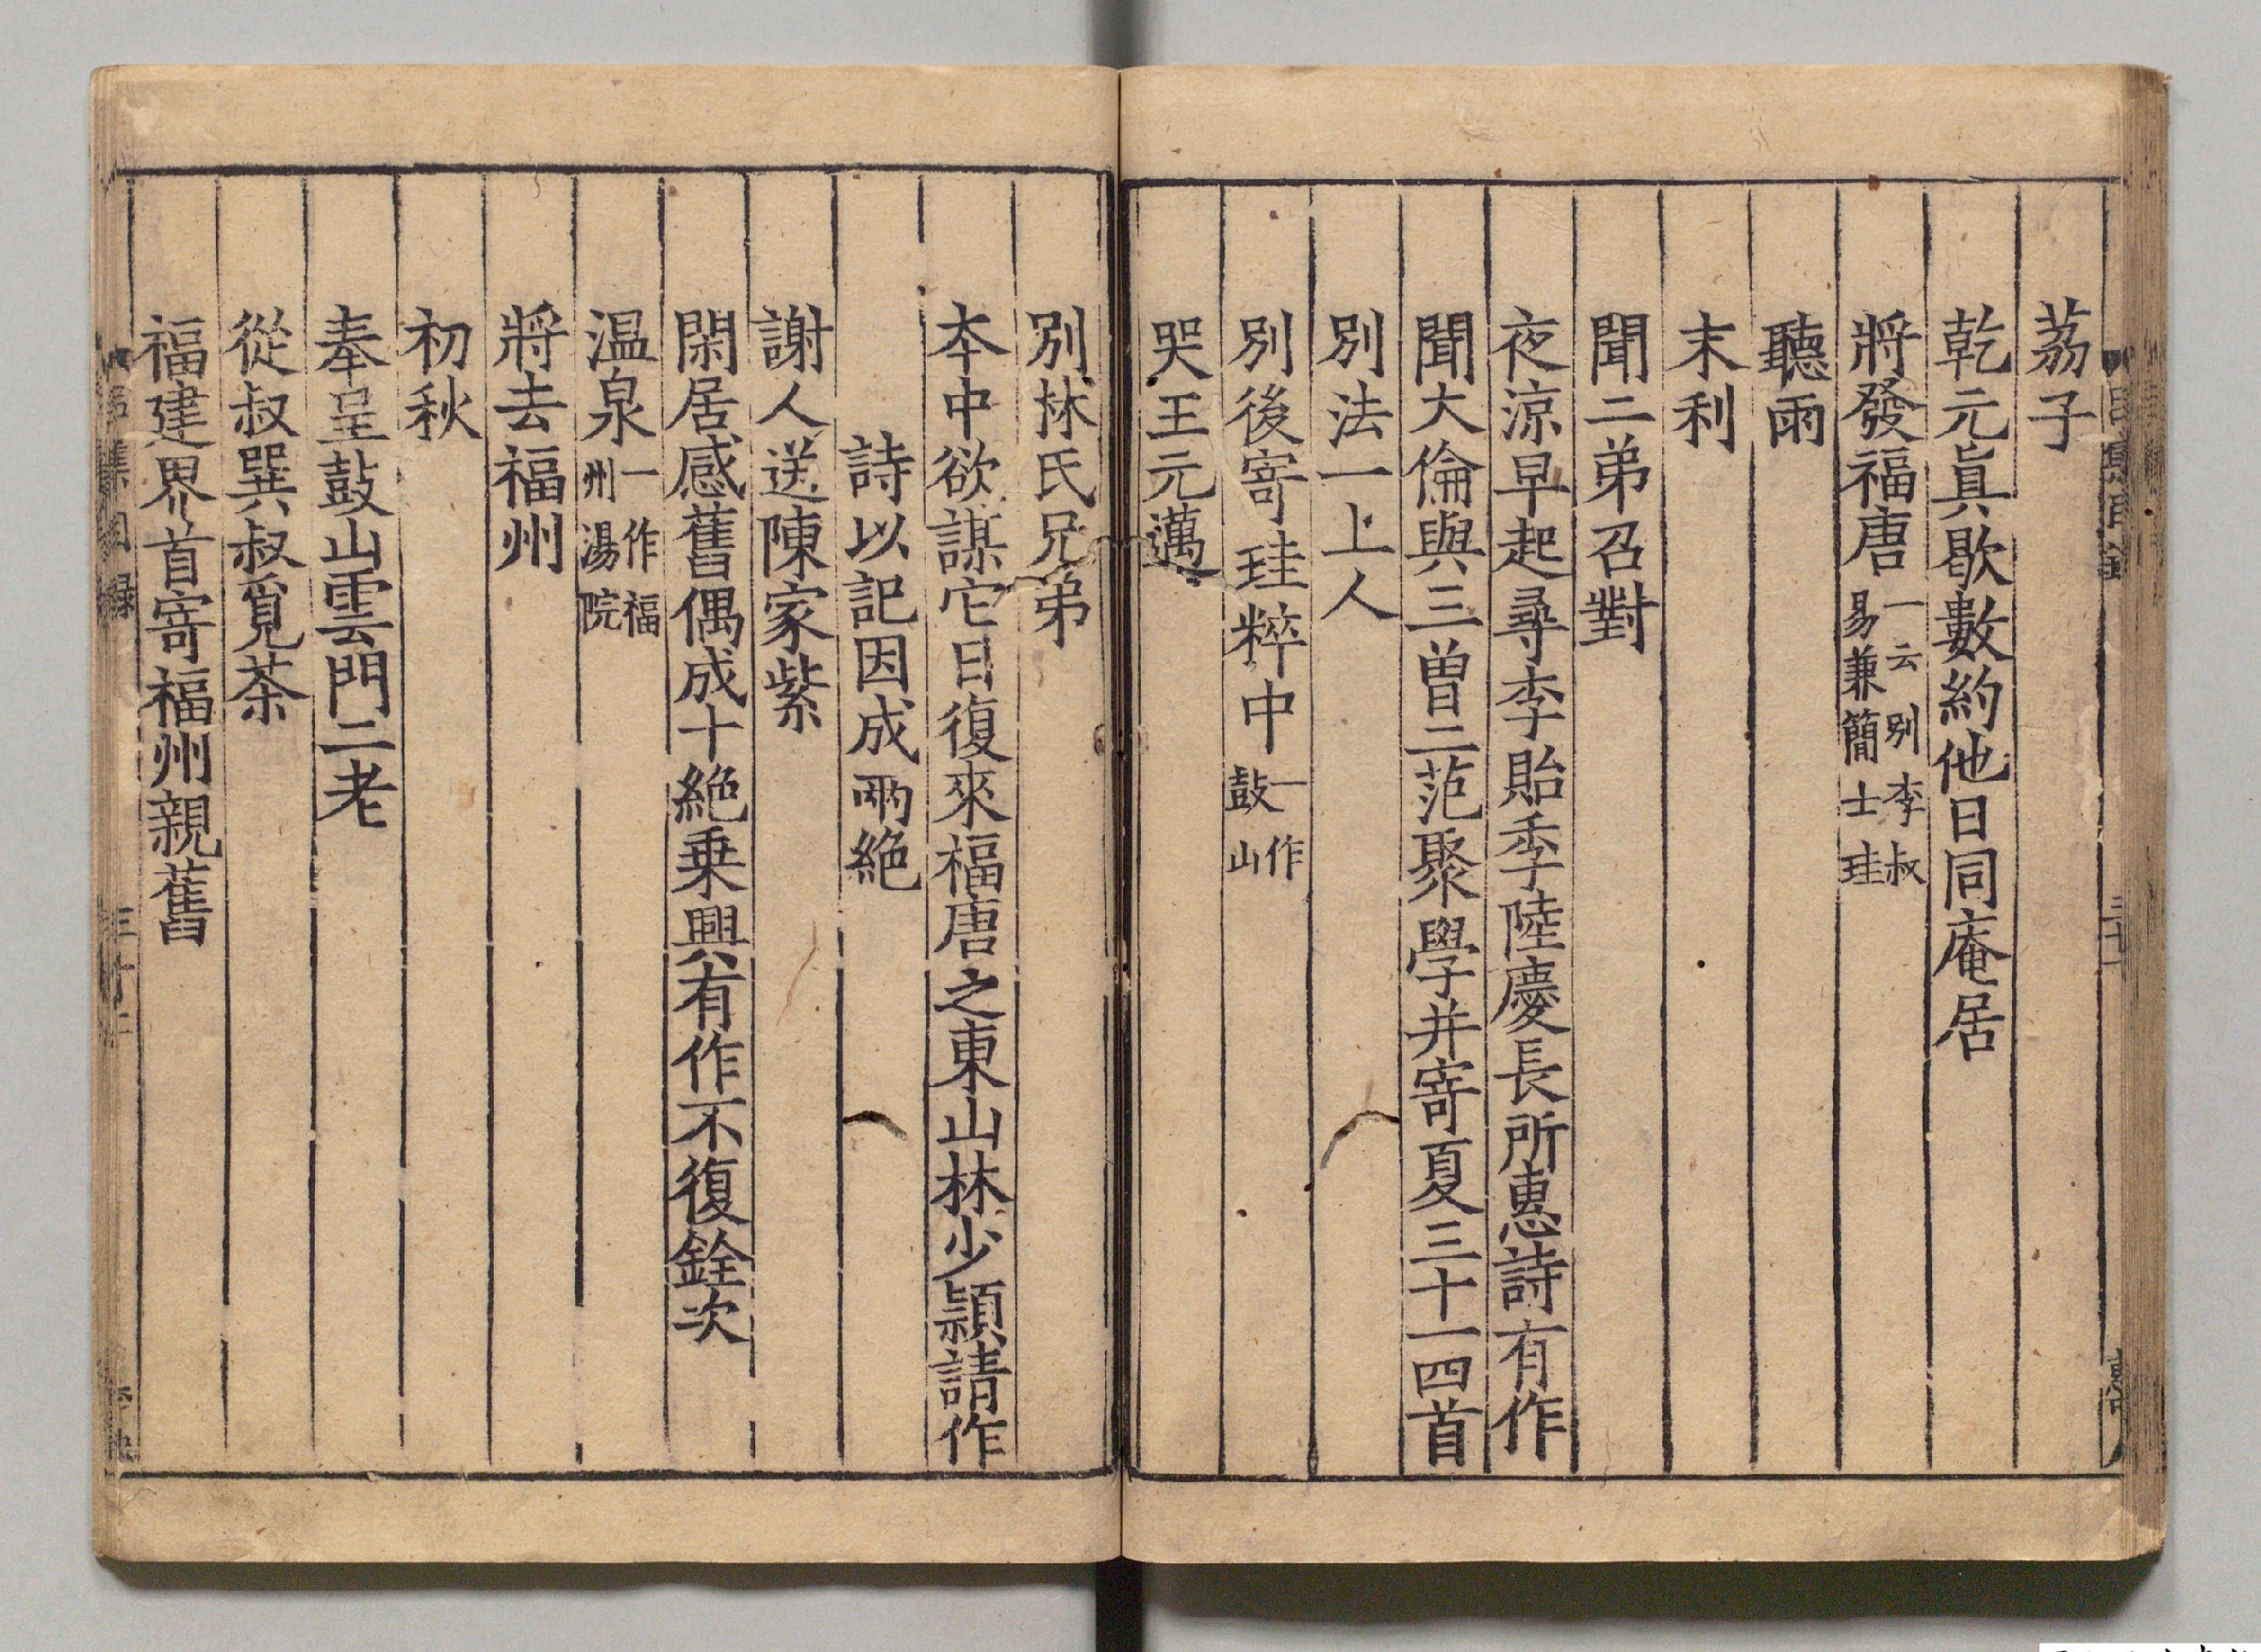 荔子
乾元眞歇數約他日同庵居
將發福唐一云別李叔易兼簡士珪
聽雨
末利
聞二弟召對
夜涼早起尋李貽季陸慶長所惠詩有作
聞大倫與三曾二范聚學并寄夏三十一四首
別法一上人
別後寄珪粹中一作鼓山
哭王元邁
別林氏兄弟
本中欲謀它日復來福唐之東山林少穎請作
詩以記因成兩絶
謝人送陳家紫
閑居感舊偶成十絶乗興有作不復銓次
温泉一作福州湯院
將去福州
初秋
奉呈鼓山雲門二老
從叔巽叔覓茶
福建界首寄福州親舊